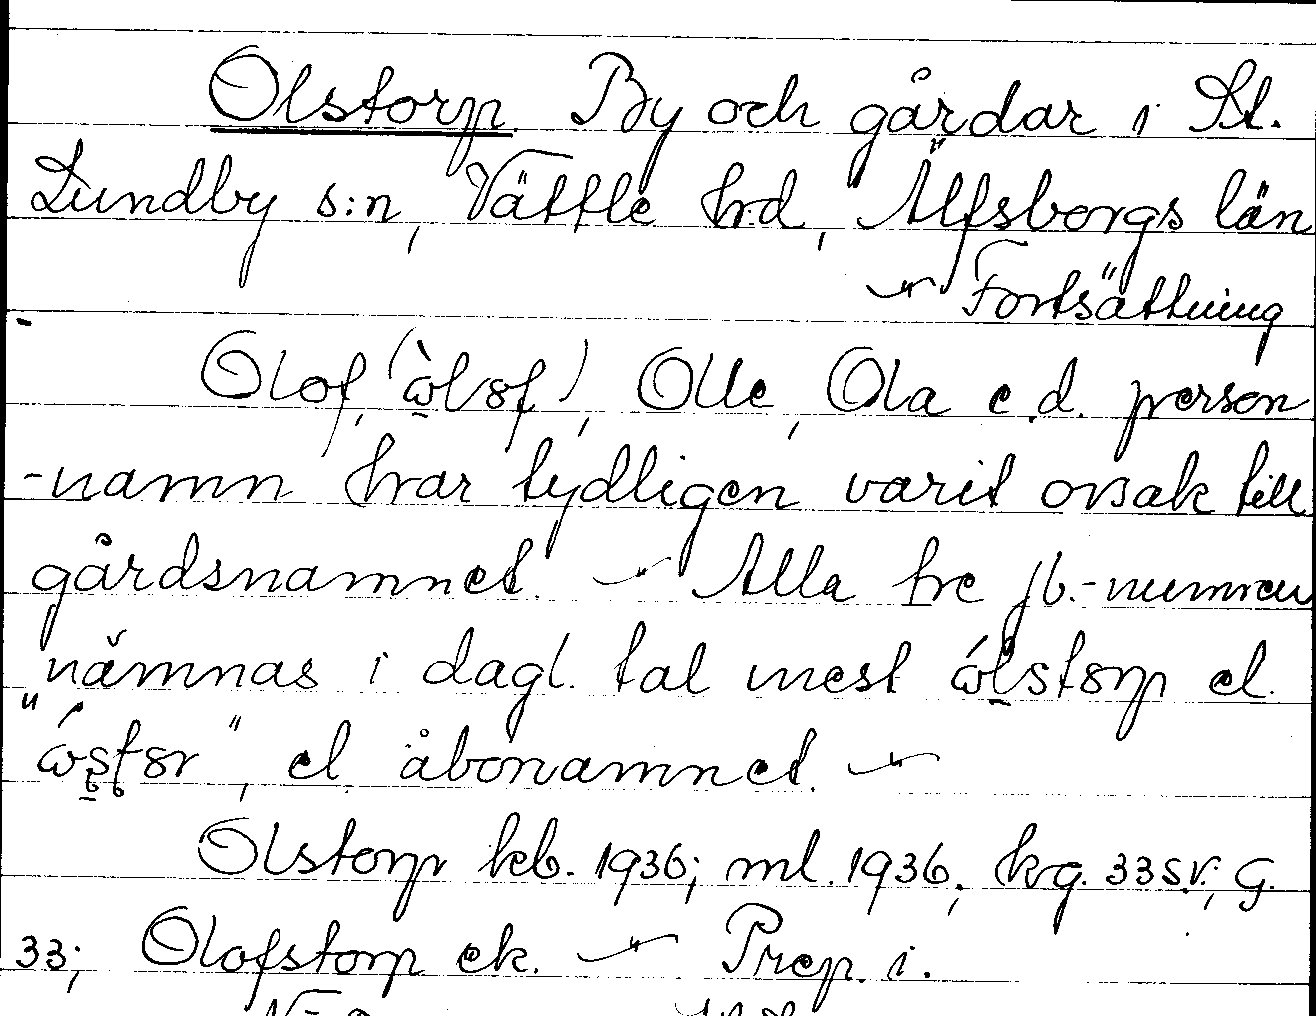 Olstorp By och gårdar i St.
Lundby s:n, Vättle hd, Älfsborgs län
–"– Fortsättning
Olof, (ὼlof), Olle, Ola e.d. person
-namn har tydligen varit orsak till
gårdsnamnet. –"– Alla tre jb.-numren
nämnas i dagl. tal mest ώlstorp el.
"ώstor", el. åbonamnet. –"–
Olstorp kb. 1936; ml. 1936; krg. 33 sv.; G.
33; Olofstorp ek. –"– Prep. i.